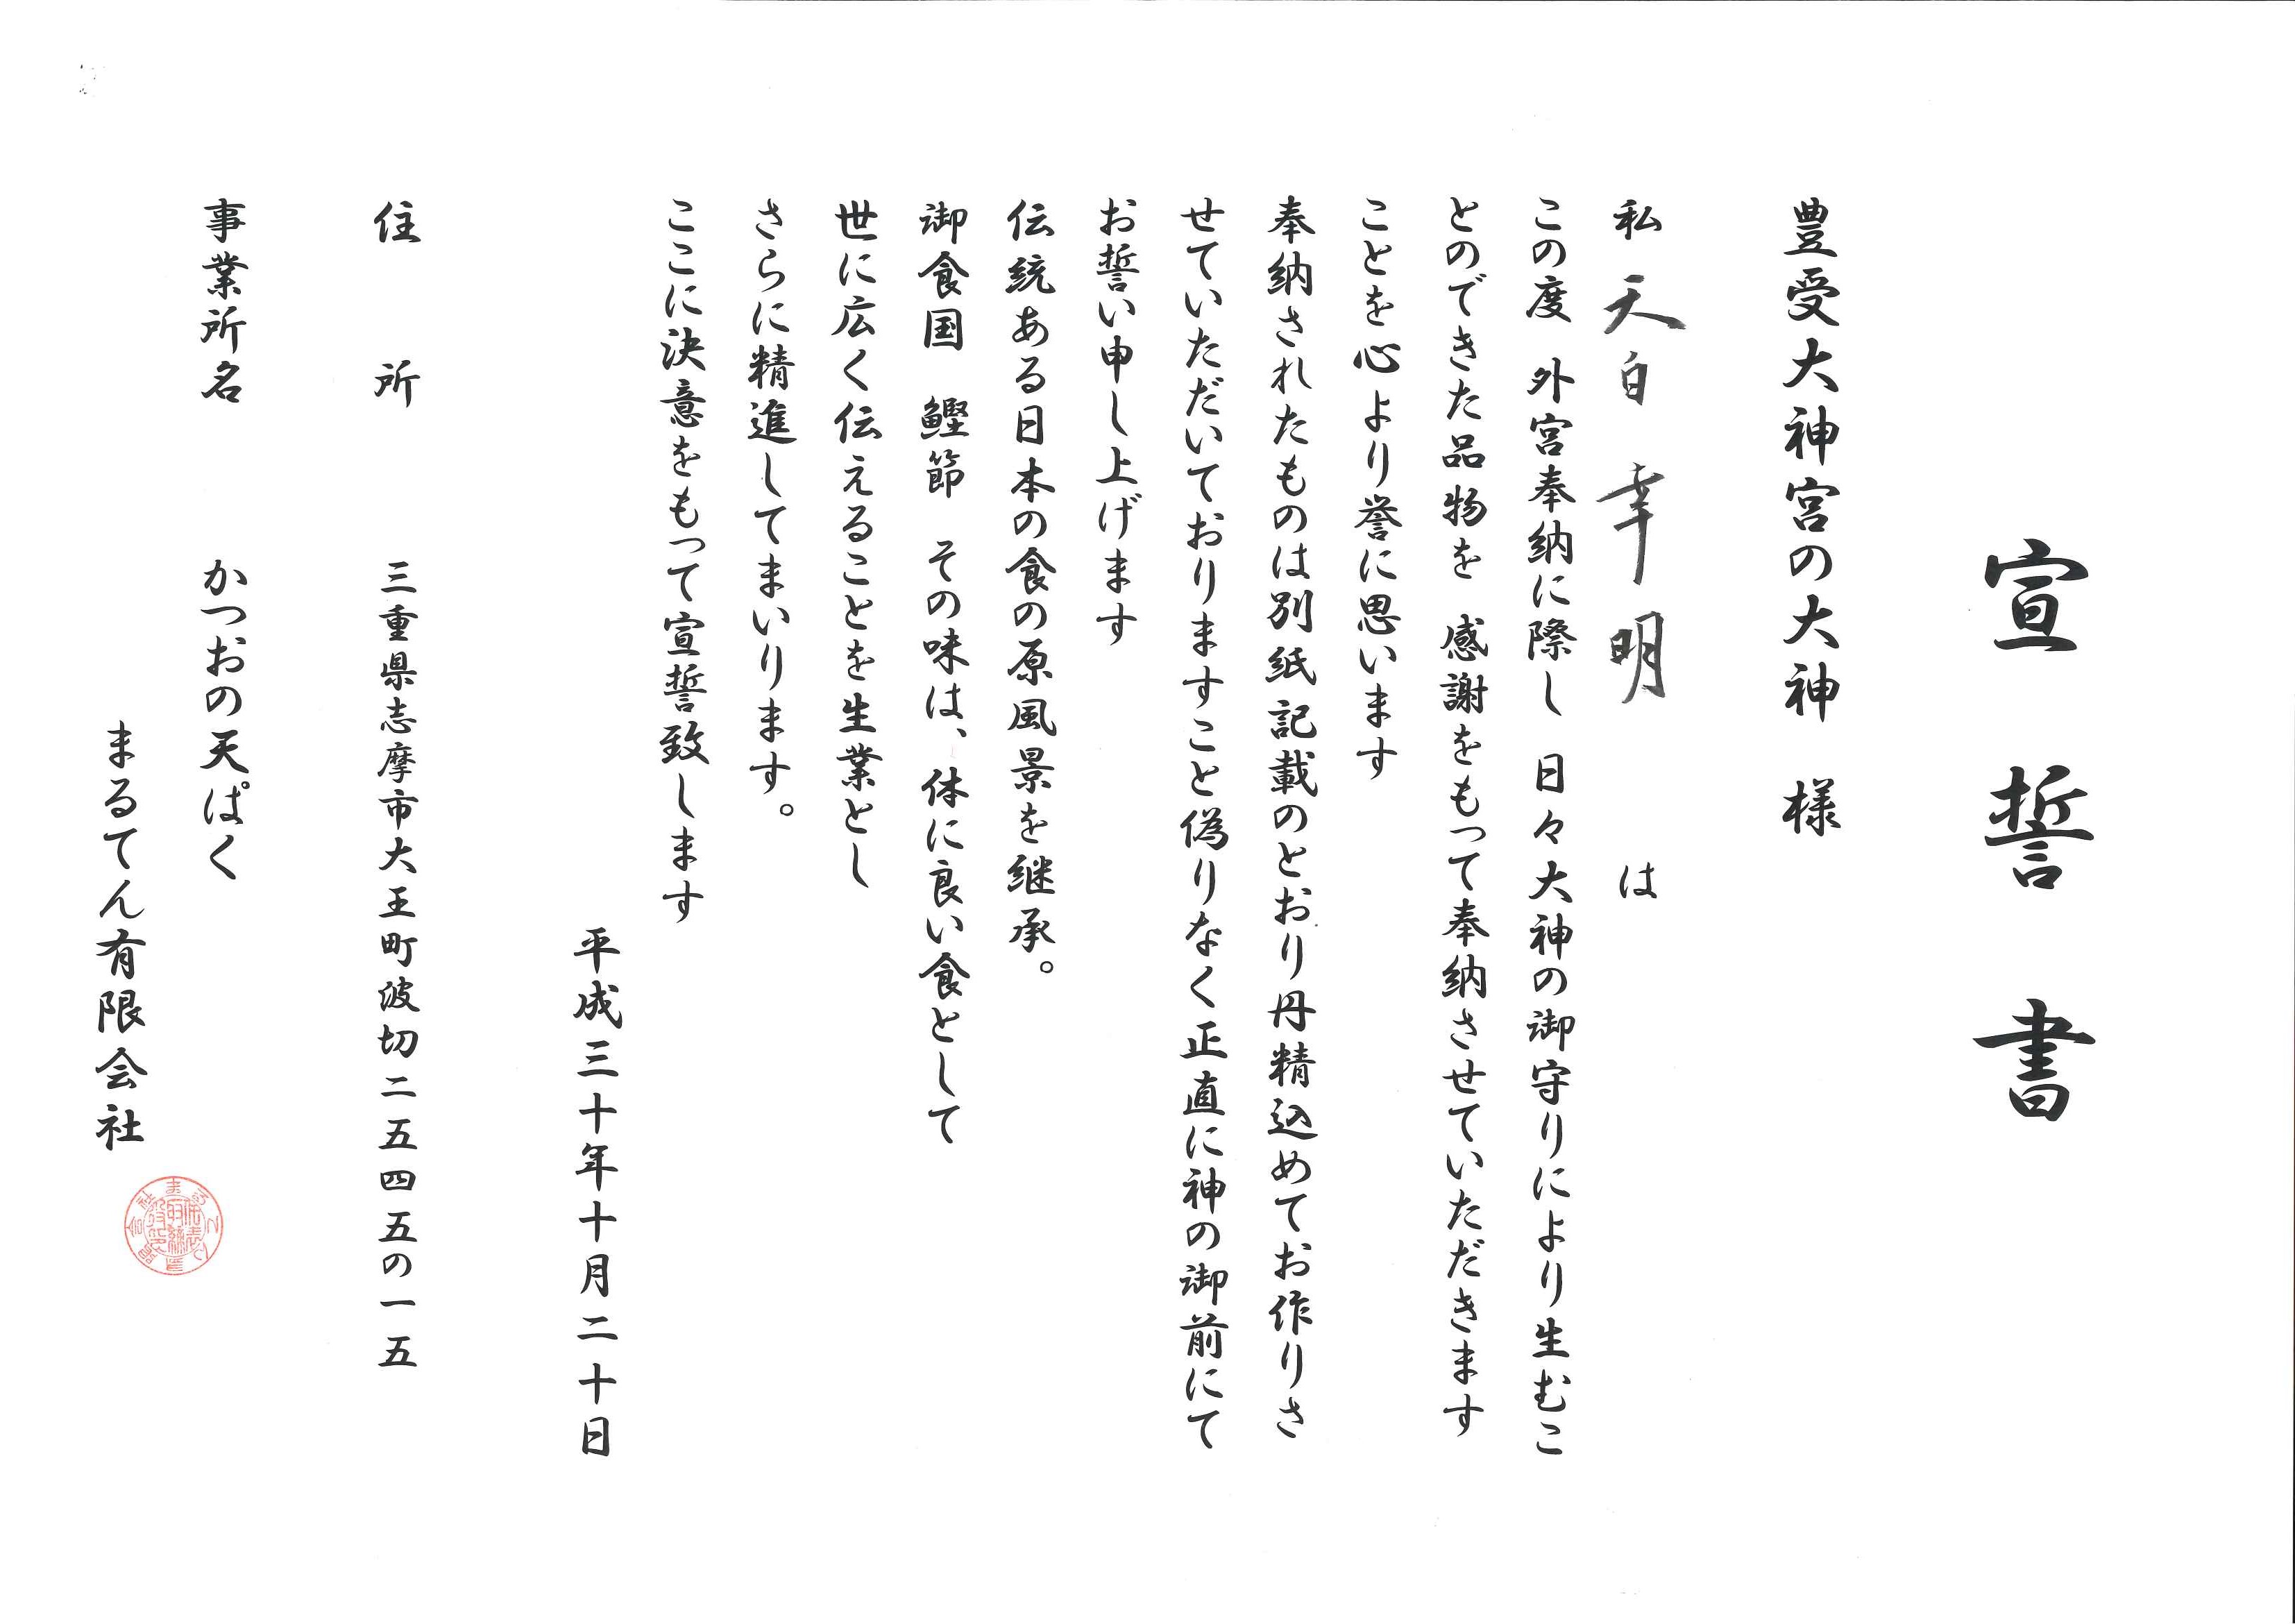 宣誓書
豊受大神宮の大神 様
私 天白 幸明 は
この度 外宮奉納に際し 日々大神の御守りにより生むこ
とのできた品物を 感謝をもって奉納させていただきます
ことを心より誉に思います
奉納されたものは別紙記載のとおり丹精込めてお作りさ
せていただいておりますこと偽りなく正直に神の御前にて
お誓い申し上げます
伝統ある日本の食の原風景を継承。
御食国 鰹節 その味は、体に良い食として
世に広く伝えることを生業とし
さらに精進してまいります。
ここに決意をもって宣誓致します
平成三十年十月二十日
住所 三重県志摩市大王町波切二五四五の一五
事業所名 かつおの天ぱく
まるてん有限会社